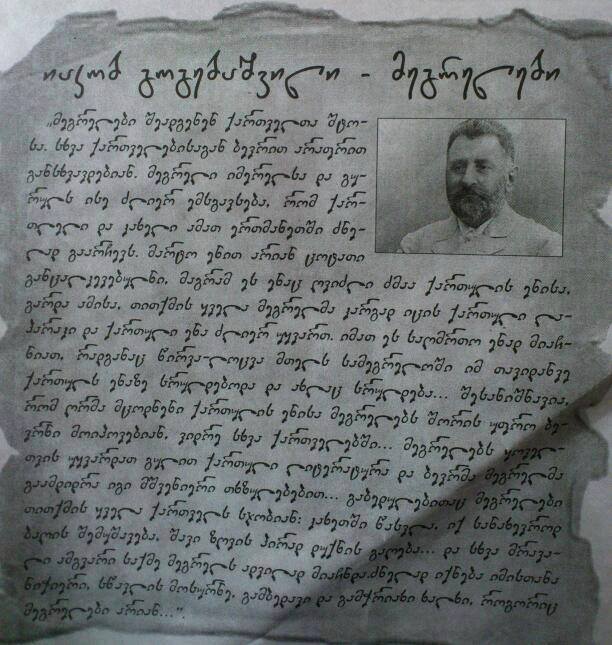 იაკობ გოგებაშვილი - მეგრელები
„მეგრელები შეადგენენ ქართველთა შტო-
სა. სხვა ქართველებისაგან ბევრით არაფრით
განსხვავდებიან. მეგრელი იმერელსა და გუ-
რულს ისე ძლიერ ემსგავსება, რომ ქარ-
თლელი და კახელი ამათ ერთმანეთში ძნე-
ლად გაარჩევს. მარტო ენით არიან ცოტათი
განცალკევებულნი, მაგრამ ეს ენაც ღვიძლი ძმაა ქართულის ენისა.
გარდა ამისა, თითქმის ყველა მეგრელმა კარგად იცის ქართული ლა-
პარაკი და ქართული ენა ძლიერ უყვართ. იმათ ეს საღმრთო ენად მიაჩ-
ნიათ, რადგანაც წირვა-ლოცვა მთელს სამეგრელოში იმ თავიდანვე
ქართულს ენაზე სრულდებოდა და ახლაც სრულდება... შესანიშნავია,
რომ ღრმა მცოდნენი ქართულის ენისა მეგრელებს შორის უფრო ბე-
ვრნი მოიპოვებიან, ვიდრე სხვა ქართველებში... მეგრელებს ყოველ-
თვის უყვარდათ გულით ქართული ლიტერატურა და ბევრმა მეგრელმა
გაამდიდრა იგი მშვენიერი თხზულებებით... გაბედულებითაც მეგრელები
თითქმის ყველა ქართველს სჯობიან: კახეთში წასვლა, იქ სანახევროდ
ბაღის შემუშავება, შავი ზღვის პირად დუქნის გაღება... და სხვა მრავა-
ლი ამგვარი საქმე მეგრელს ადვილად მიაჩნდა.ძნელად იქნება იმისთანა
ნიჭიერი, სწავლის მოსურნე, გამბედავი და გამჭრიახი ხალხი, როგორიც
მეგრელები არიან...“.